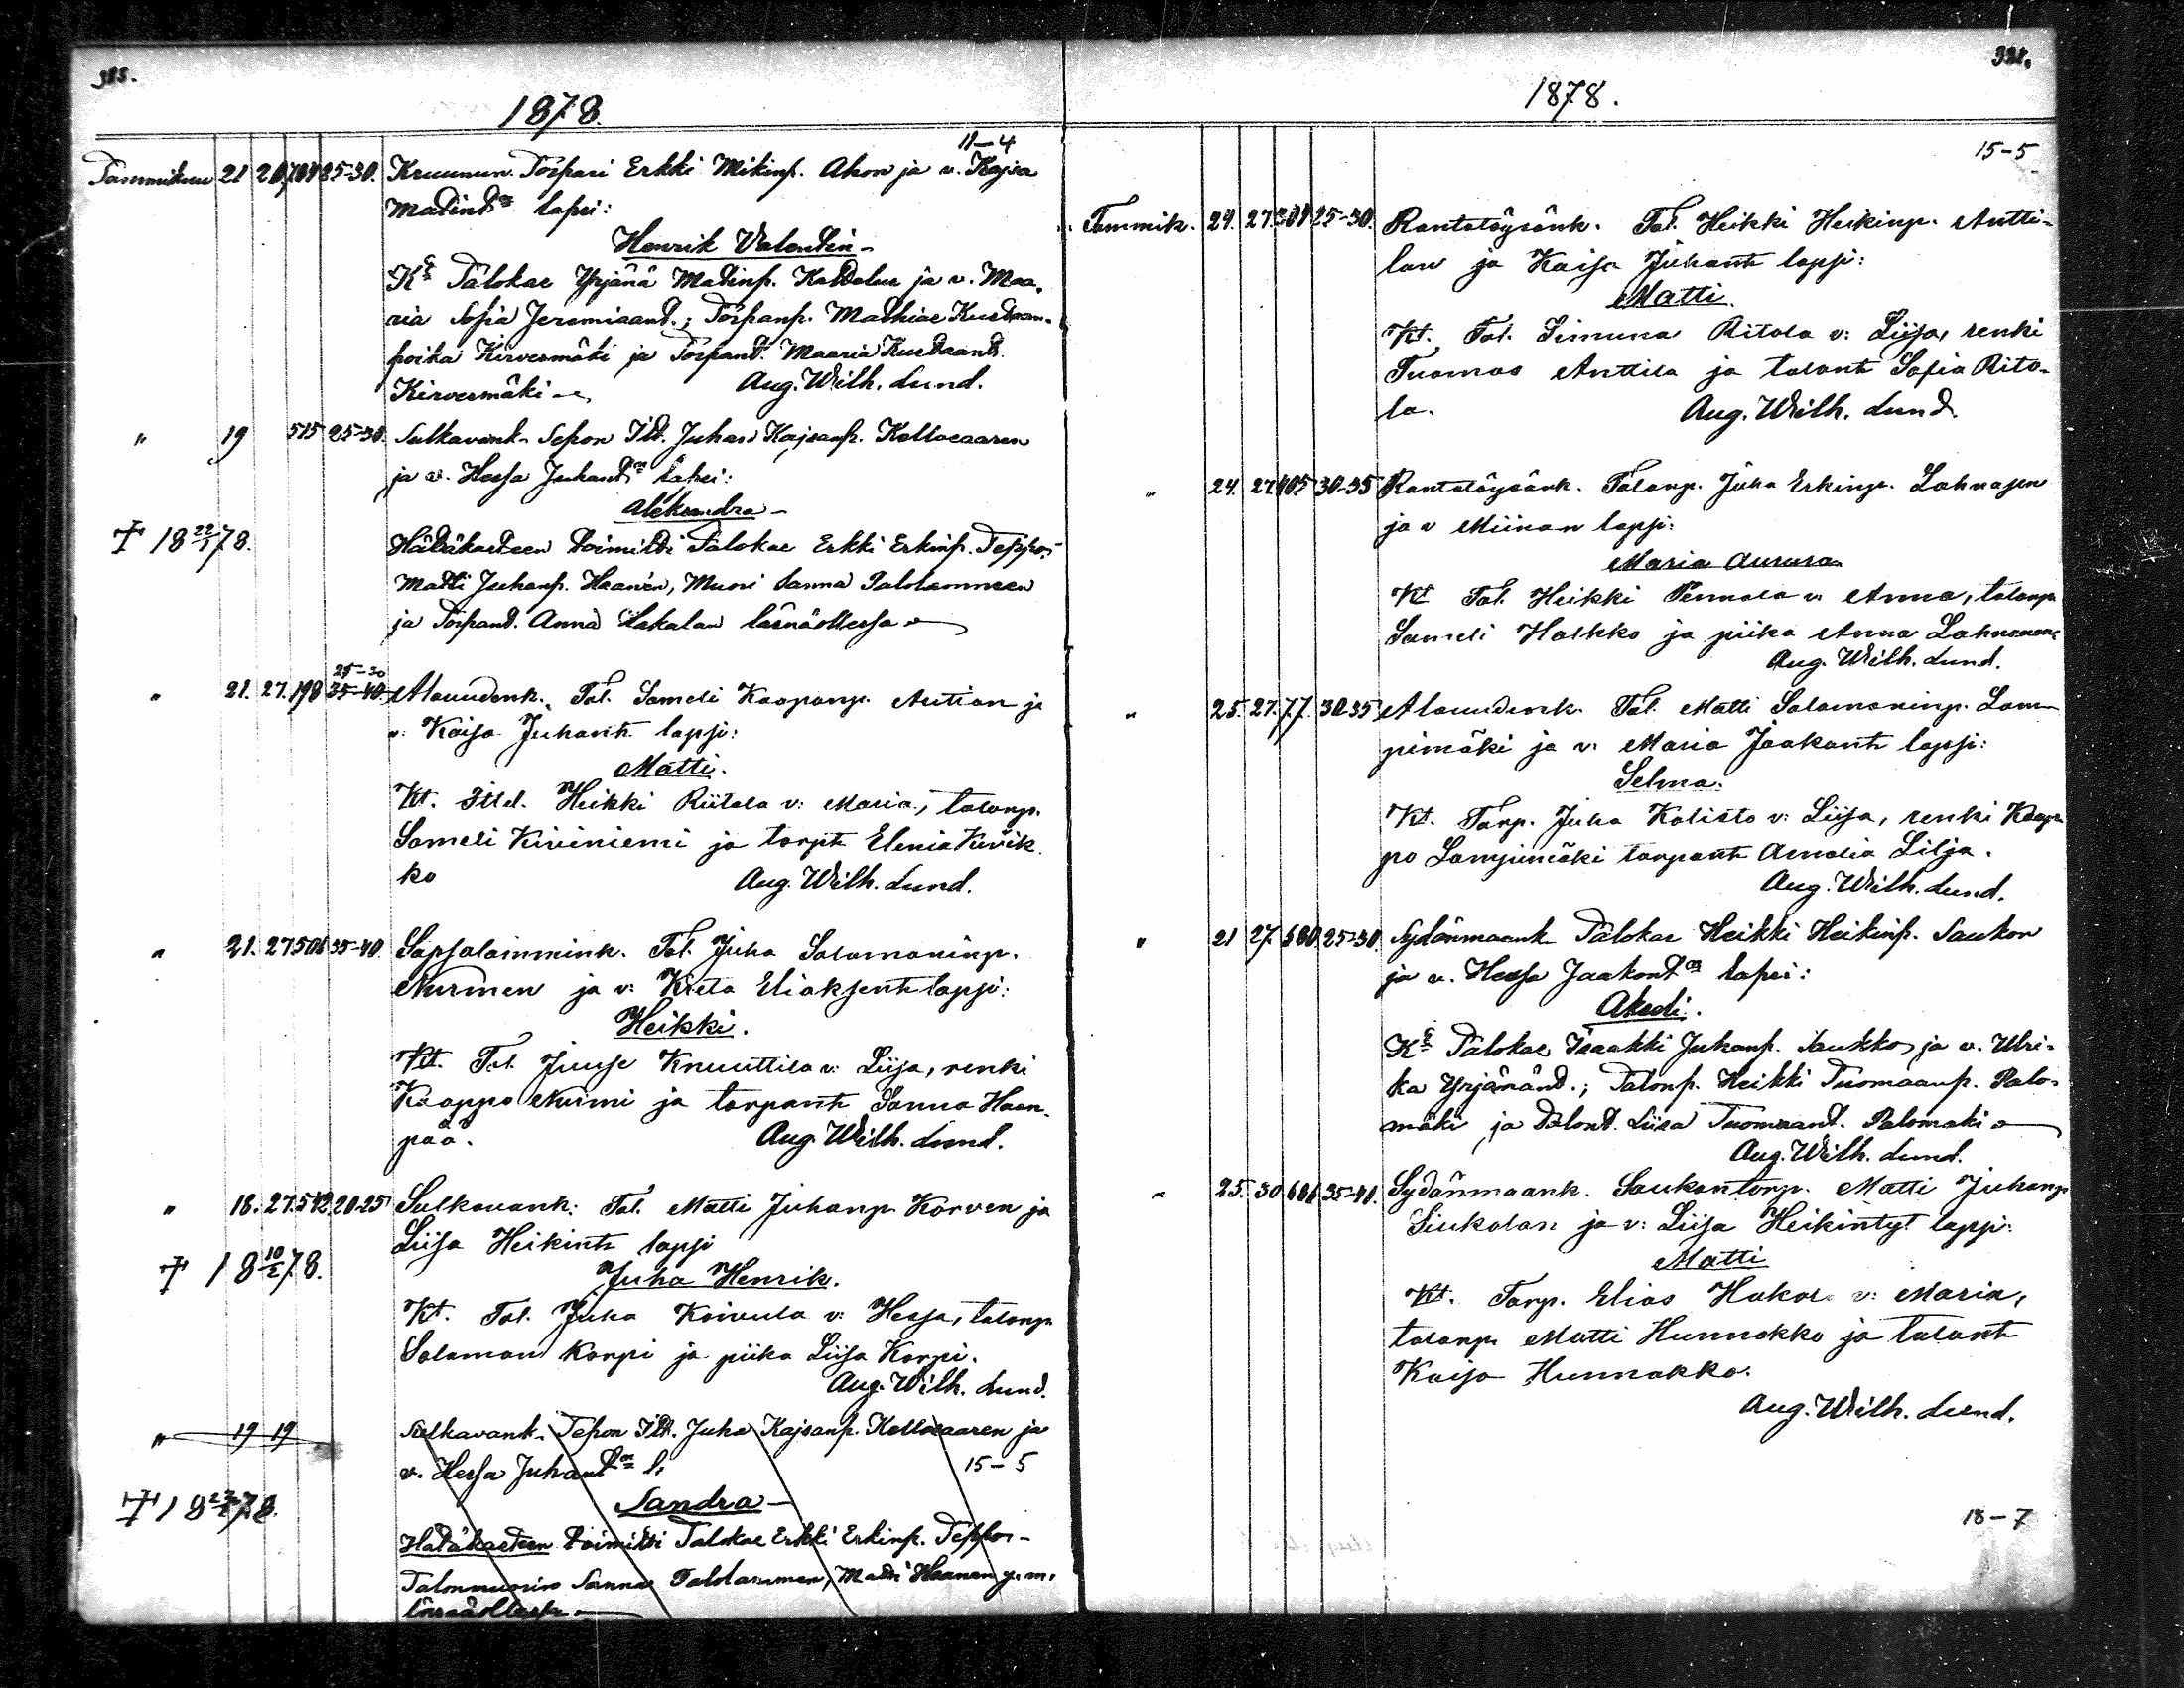 1878.
11-4
Tammikuu 21 20 25-30. Kruunun Torpari Erkki Mikinp. Ahon ja v. Kajsa
Matint:n lapsi:
Henrik Valentin
Kt Talokas Yrjänä Matinp. ja v. Maa-
ria Sofia Jeremiaant.; Torpanp. Mathias Kustaan-
poika Kirvesmäki ja Torpant. Maaria Kustaant.
Kirvesmäki Aug. Wilh. Lund.
" 19 515 25-30. Sulkavank. Sepon Itl. Juhan Kajsanp.
ja v. Hessa Juhant:n lapsi:
Aleksandra
† 18 22/1 78. Hätäkasteen toimitti Talokas Erkki Erkinp. Teppo,
Matti Juhanp. Haanen, Muori Sanna
ja Torpant. Anna Lakalan läsnäollessa
25-30
" 21. 27. 198 35-40. Alavudenk. Tal. Sameli Kaaponp. Autian ja
v: Kaisa Juhant: lapsi:
Matti.
Kt. Itlel. Heikki Riitala v: Maria, talonp.
Sameli Kiviniemi ja torpt: Elenia Kivik
ko Aug. Wilh. Lund.
" 21. 27 506 35-40. Sapsalammink. Tal. Juha Salamoninp.
Nurmen ja v: Kreta Eliaksent: lapsi:
Heikki.
Kt. Tal. Juuse Knuuttila v: Liisa, renki
Kaappo Nurmi ja torpant: Sanna Haan-
pää. Aug. Wilh. Lund.
" 18. 27. 542 20-25 Sulkavank: Tal. Matti Juhanp. Korven ja
Liisa Heikint: lapsi
† 18 10/2 78. Juha Henrik.
Kt. Tal. Juha Koivula v: Hessa, talonp.
Salamon Korpi ja piika Liisa Korpi.
Aug. Wilh. Lund.
" 19 19 Sulkavank. Sepon Itl. Juha Kajsanp. ja
v. Hessa Juhant:n l. 15-5
Sandra
† 18 78. Hätäkasteen toimitti Talokas Erkki Erkinp. Teppo
Talonmuorin Sanna Matti Haanen y. m.
läsnäollessa
1878.
15-5
Tammik. 24. 27. 304 25-30. Rantatöysänk. Tal. Heikki Heikinp. Antti-
lan ja Kaisa Juhant: lapsi:
Matti.
Kt. Tal. Simuna Ritola v: Liisa, renki
Tuomas Anttila ja talont: Sofia Rito-
la. Aug. Wilh. Lund.
" 24. 27. 405 30-35 Rantatöysänk. Talonp. Juha Erkinp. Lahnasen
ja v Miinan lapsi:
Maria Aurora
Kt Tal. Heikki Pennala v: Anna, talonp.
Sameli Halkko ja piika Anna Lahnanen
Aug. Wilh. Lund.
" 25. 27. 77. 30-35 Alavudenk. Tal. Matti Salamoninp. Lam-
pimäki ja v: Maria Jaakont: lapsi:
Selma.
Kt. Torp. Juha Kalisto v: Liisa, renki Kaap
po Lampimäki torpant: Amalia Lilja.
Aug. Wilh. Lund.
" 21 27. 680 25-30. Sydänmaank. Talokas Heikki Heikinp. Saukon
ja v. Hessa Jaakont:n lapsi:
Akseli.
Kt Talokas Isaakki Juhanp. Saukko ja v. Ulri-
ka Yrjänänt.; Talonp. Heikki Tuomaanp. Palo-
mäki ja Talont. Liisa Tuomaant. Palomäki
Aug. Wilh. Lund.
" 25. 30 686 35-40. Sydänmaank. Saukontorp. Matti Juhanp
Siukolan ja v: Liisa Heikintyt lapsi:
Matti
Kt. Torp. Elias Hakola v: Maria,
talonp. Matti Hunnakko ja talont:
Kaisa Hunnakko.
Aug. Wilh. Lund.
18-7